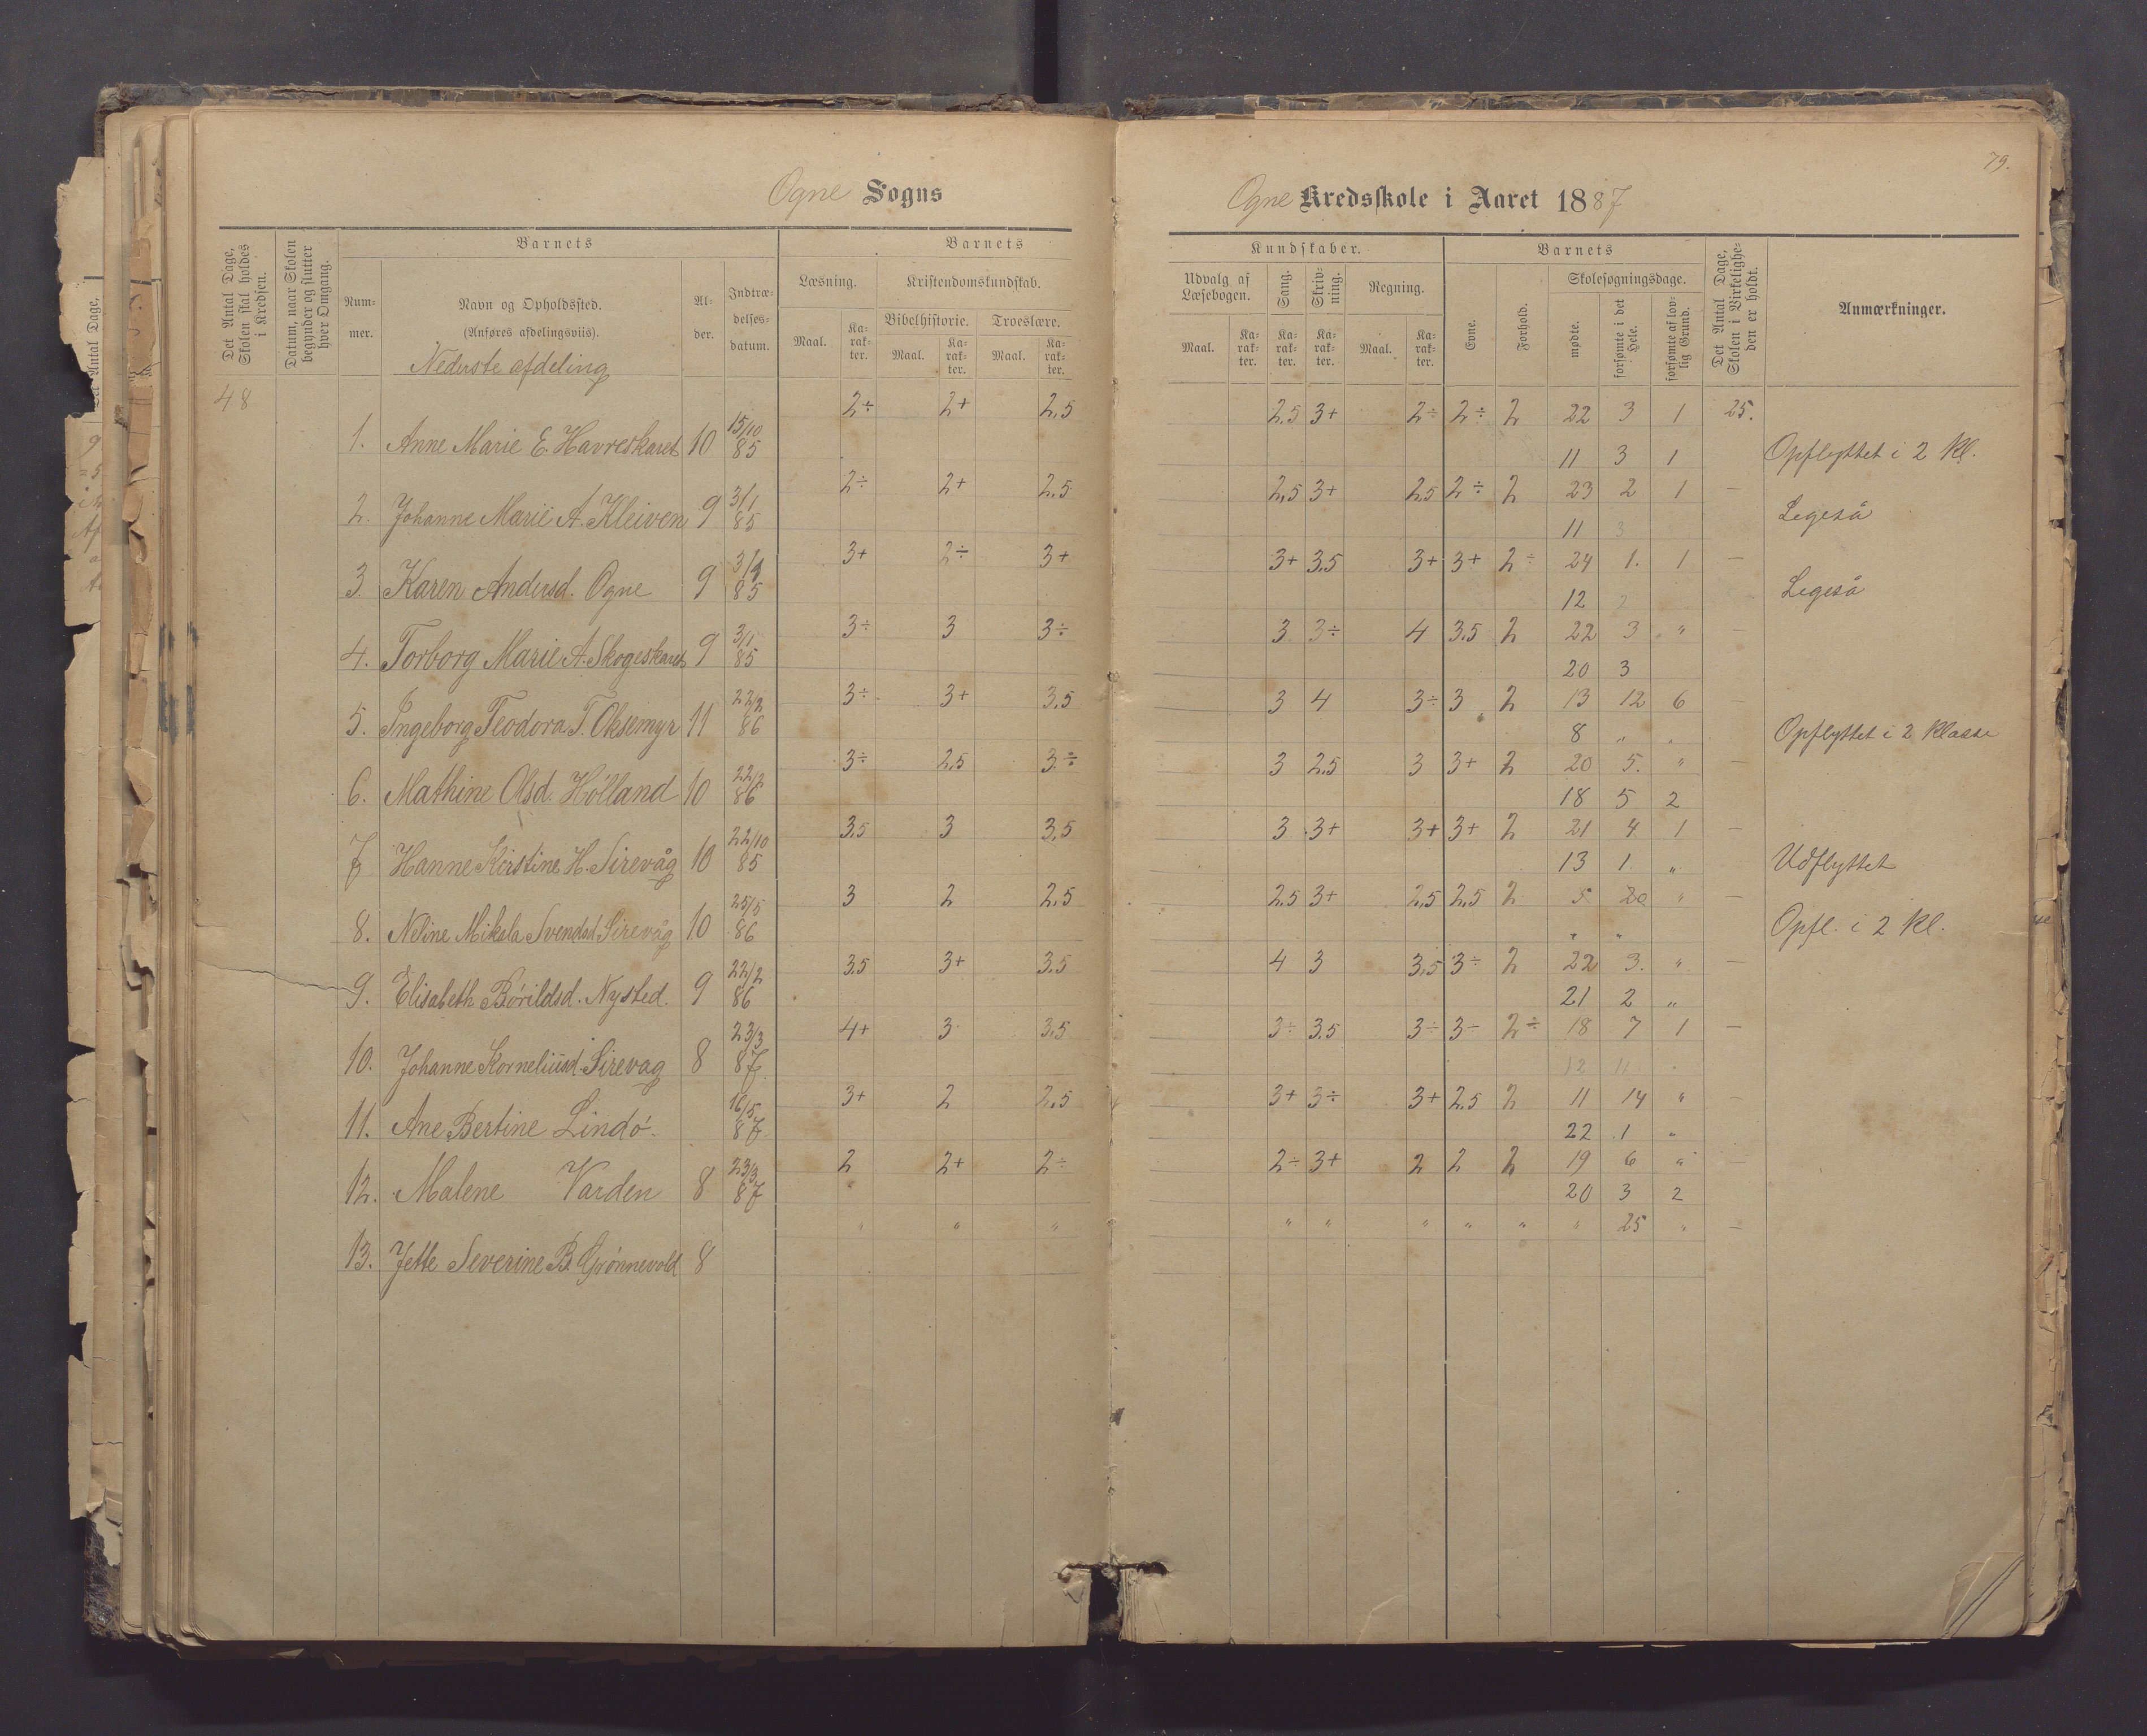 79.
Ogne Sogns
Ogne Kredsskole i Aaret 1887
Det Antal Dage, Skolen skal holdes i Kredsen.
Datum, naar Skolen begynder og slutter hver Omgang.
Barnets
Num-
mer.
Navn og Opholdssted.
(Anføres afdelingsviis).
Nederste afdeling
Al-
der.
Indtræ-
delses-
datum.
Barnets
Læsning.
Kristendomskundskab.
Bibelhistorie. Troeslære.
Maal. Ka-rak-ter. Maal. Ka-rak-ter. Maal. Ka-rak-ter.
Kundskaber.
Udvalg af Læsebogen.
Sang.
Skriv-ning.
Regning.
Maal. Ka-rak-ter. Ka-rak-ter. Ka-rak-ter. Maal. Ka-rak-ter.
Barnets
Evne.
Forhold.
Skolesøgningsdage.
mødte.
forsømte i det Hele.
forsømte af lov-lig Grund.
Det Antal Dage, Skolen i Virkelighe-den er holdt.
Anmærkninger.
48
1. Anne Marie E. Havreskaret 10 15/10 85 2÷ 2+ 2,5 2,5 3+ 2÷ 2÷ 2 22 3 1 25.
11 3 1 Opflyttet i 2 Kl.
2. Johanne Marie A. Kleiven 9 3/1 85 2÷ 2+ 2,5 2,5 3+ 2,5 2÷ 2 23 2 1 —
11 3 Ligeså
3. Karen Andersd. Ogne 9 3/1 85 3+ 2÷ 3+ 3+ 3,5 3+ 3+ 2÷ 24 1. 1 —
12 2 Ligeså
4. Torborg Marie A. Skogeskaret 9 3/1 85 3÷ 3 3÷ 3 3÷ 4 3,5 2 22 3 " —
20 3
5. Ingeborg Teodora T. Oksemyr 11 22/2 86 3÷ 3+ 3,5 3 4 3÷ 3 2 13 12 6 —
8 " " Opflyttet i 2 Klasse
6. Mathine Olsd. Hölland 10 22/2 86 3÷ 2,5 3÷ 3 2,5 3 3+ 2 20 5. " —
18 5 2
7 Hanne Kirstine H. Sirevåg 10 22/10 85 3,5 3 3,5 3 3+ 3+ 3+ 2 21 4 1 —
13 1 " Udflyttet
8. Neline Mikala Svendsd. Sirevåg 10 25/5 86 3 2 2,5 2,5 3+ 2,5 2,5 2 5 20 " —
" " Opfl. i 2 Kl.
9. Elisabeth Börildsd. Nysted. 9 22/2 86 3,5 3+ 3,5 4 3 3,5 3÷ 2 22 3. " —
21 2 "
10. Johanne Korneliusd. Sirevag 8 23/3 87 4+ 3 3,5 3÷ 3,5 3÷ 3÷ 2÷ 18 7 1 —
12 11
11. Ane Bertine Lindö. 16/5 87 3+ 2 2,5 3+ 3÷ 3+ 2,5 2 11 14 " —
22 1 "
12. Malene Varden 8 23/3 87 2 2+ 2÷ 2÷ 3+ 2 2 2 19 6 " —
20 3 2
13. Jette Severine B. Grönnevold 8 " " " " " " " " " 25 " —